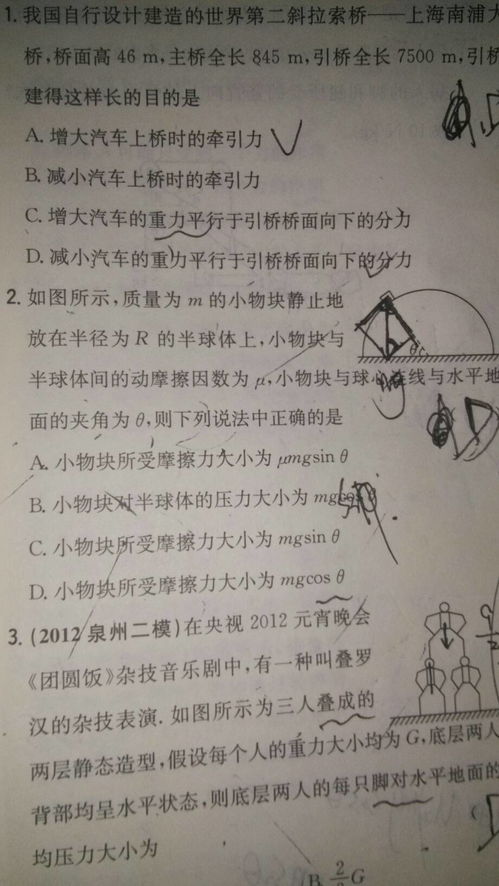 1. 我国自行设计建造的世界第二斜拉索桥——上海南浦大
桥,桥面高 46 m,主桥全长 845 m,引桥全长 7500 m,引桥
建得这样长的目的是
A. 增大汽车上桥时的牵引力
B. 减小汽车上桥时的牵引力
C. 增大汽车的重力平行于引桥桥面向下的分力
D. 减小汽车的重力平行于引桥桥面向下的分力
2. 如图所示,质量为 m 的小物块静止地
放在半径为 R 的半球体上,小物块与
半球体间的动摩擦因数为 μ,小物块与球心连线与水平地
面的夹角为 θ,则下列说法中正确的是
A. 小物块所受摩擦力大小为 μmgsin θ
B. 小物块对半球体的压力大小为 mgcos θ
C. 小物块所受摩擦力大小为 mgsin θ
D. 小物块所受摩擦力大小为 mgcos θ
3. (2012 泉州二模)在央视 2012 元宵晚会
《团圆饭》杂技音乐剧中,有一种叫叠罗
汉的杂技表演. 如图所示为三人叠成的
两层静态造型,假设每个人的重力大小均为 G,底层两人
背部均呈水平状态,则底层两人的每只脚对水平地面的
均压力大小为
B. 2/3 G